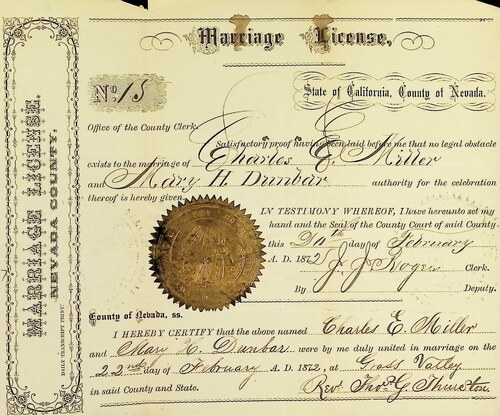 Marriage License,
MARRIAGE LICENSE.
NEVADA COUNTY.
DAILY TRANSCRIPT PRINT.
No. 15
State of California, County of Nevada.
Office of the County Clerk.
Satisfactory proof having been laid before me that no legal obstacle
exists to the marriage of Charles E Miller
and Mary H. Dunbar authority for the celebration
thereof is hereby given
IN TESTIMONY WHEREOF, I have hereunto set my
hand and the Seal of the County Court of said County
this day of February
A. D. 1872 J. J. Rogers Clerk.
By Deputy.
County of Nevada, ss.
I HEREBY CERTIFY that the above named Charles E. Miller
and Mary H. Dunbar were by me duly united in marriage on the
22nd day of February A. D. 1872, at Grass Valley
in said County and State. Rev. Thos. G. Thurston